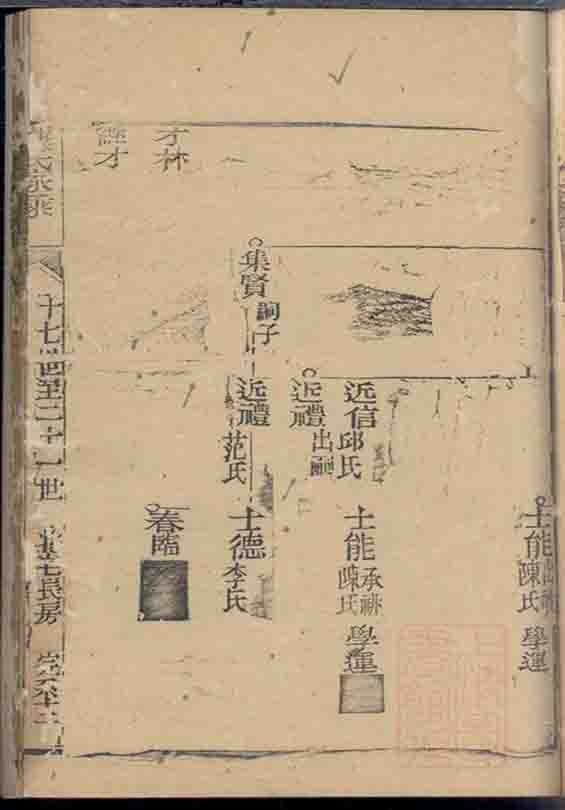 士能
陳氏
學運
近信邱氏
士能承祧
陳氏
學運
近禮出嗣
才林
集賢嗣子
近禮范氏
士德李氏
才
春臨
十七世至二十一世
長房